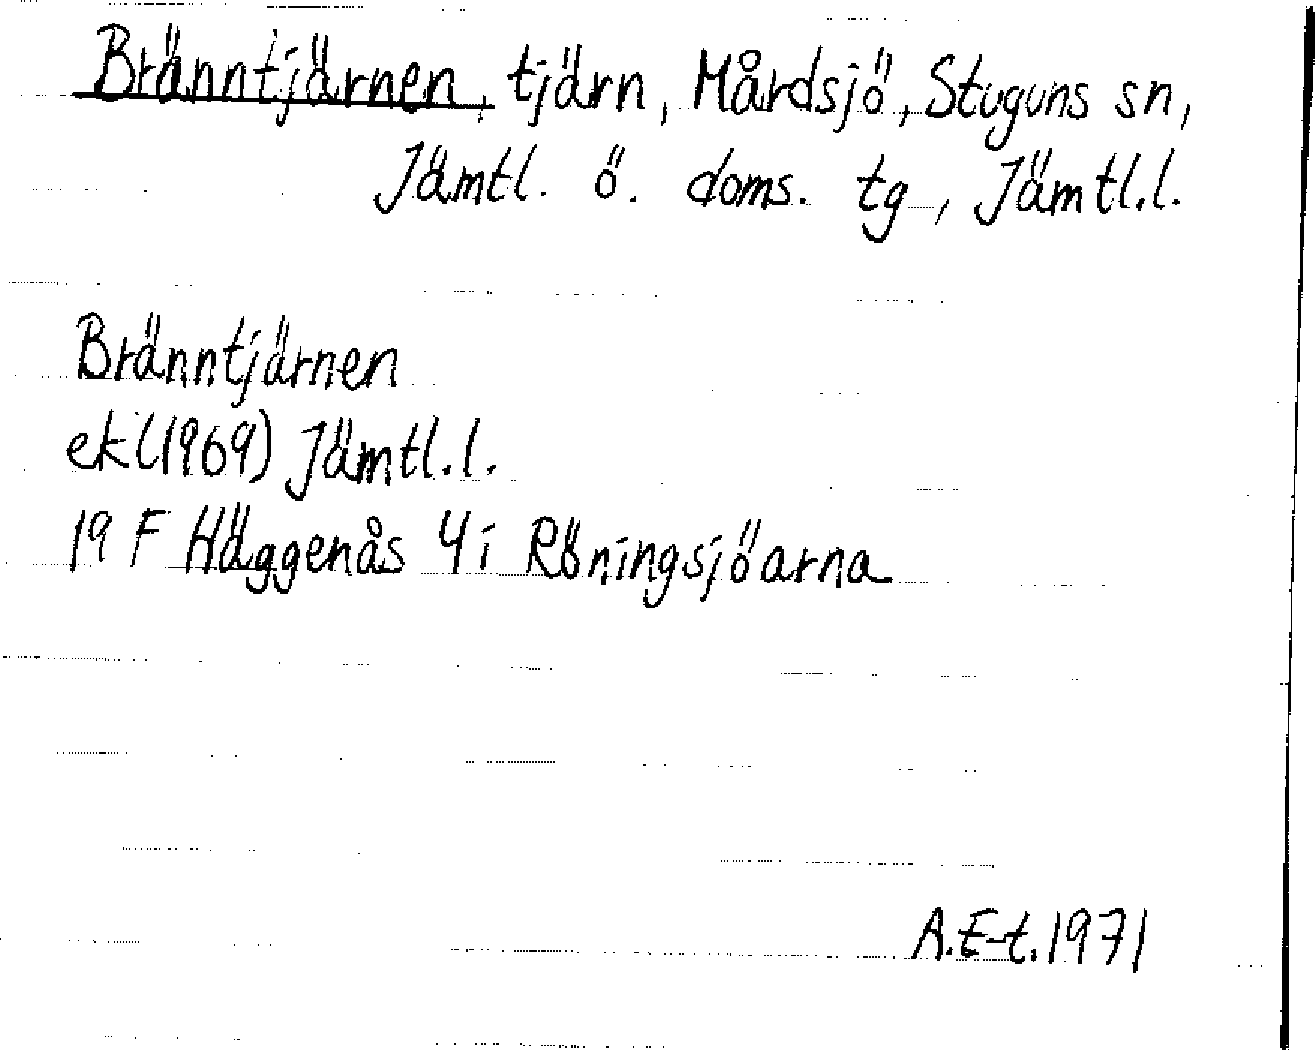 Bränntjärnen, tjärn, Mårdsjö, Stuguns sn,
Jämtl. ö. doms. tg, Jämtl.l.
Bränntjärnen
ek (1969) Jämtl.l.
19 F Häggenås 4i Röningsjöarna
A.E-t. 1971